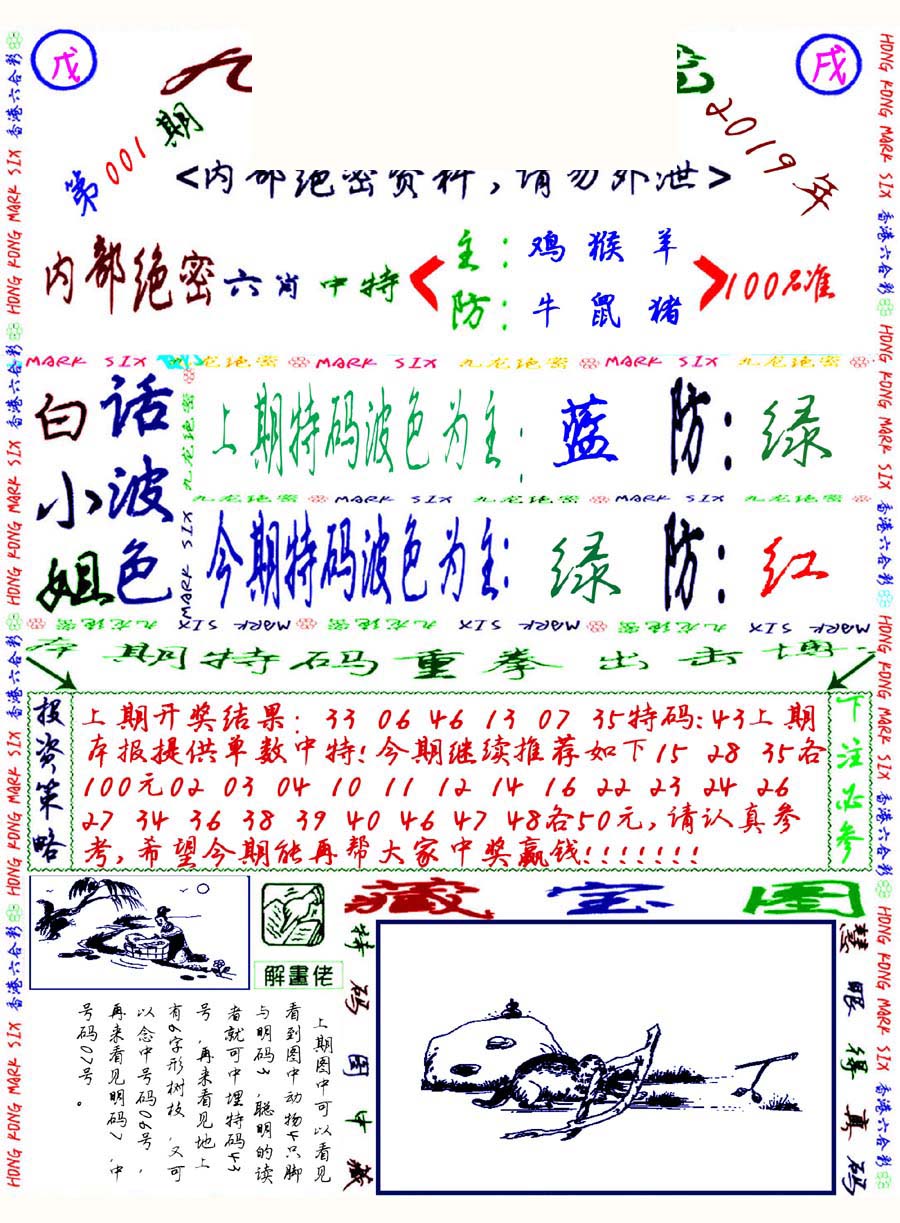 戊
戌
第001期
2019年
<内部绝密资料，请勿外泄>
内部绝密六肖中特
主：鸡猴羊
防：牛鼠猪
100%准
MARK SIX 九龙绝密 MARK SIX 九龙绝密 MARK SIX 九龙绝密
白话小波姐色
上期特码波色为主：蓝 防：绿
九龙绝密 MARK SIX 九龙绝密 MARK SIX 九龙绝密
今期特码波色为主：绿 防：红
九龙绝密 MARK SIX 九龙绝密 MARK SIX 九龙绝密 MARK SIX
期特码重拳出击博
投资策略
上期开奖结果：33 06 46 13 07 35特码:43上期
本报提供单数中特!今期继续推荐如下15 28 35各
100元02 03 04 10 11 12 14 16 22 23 24 26
27 34 36 38 39 40 46 47 48各50元,请认真参
考,希望今期能再帮大家中奖赢钱!!!!!!!
下注必参
藏宝图
解畫佬
特码图中藏
慧眼得真码
上期图中可以看见
看到图中动物4只脚
与明码3，聪明的读
者就可中埋特码43
号，再来看见地上
有6字形树枝，又可
以念中号码06号，
再来看见明码7，中
号码07号。
HONG KONG MARK SIX 香港六合彩
HONG KONG MARK SIX 香港六合彩